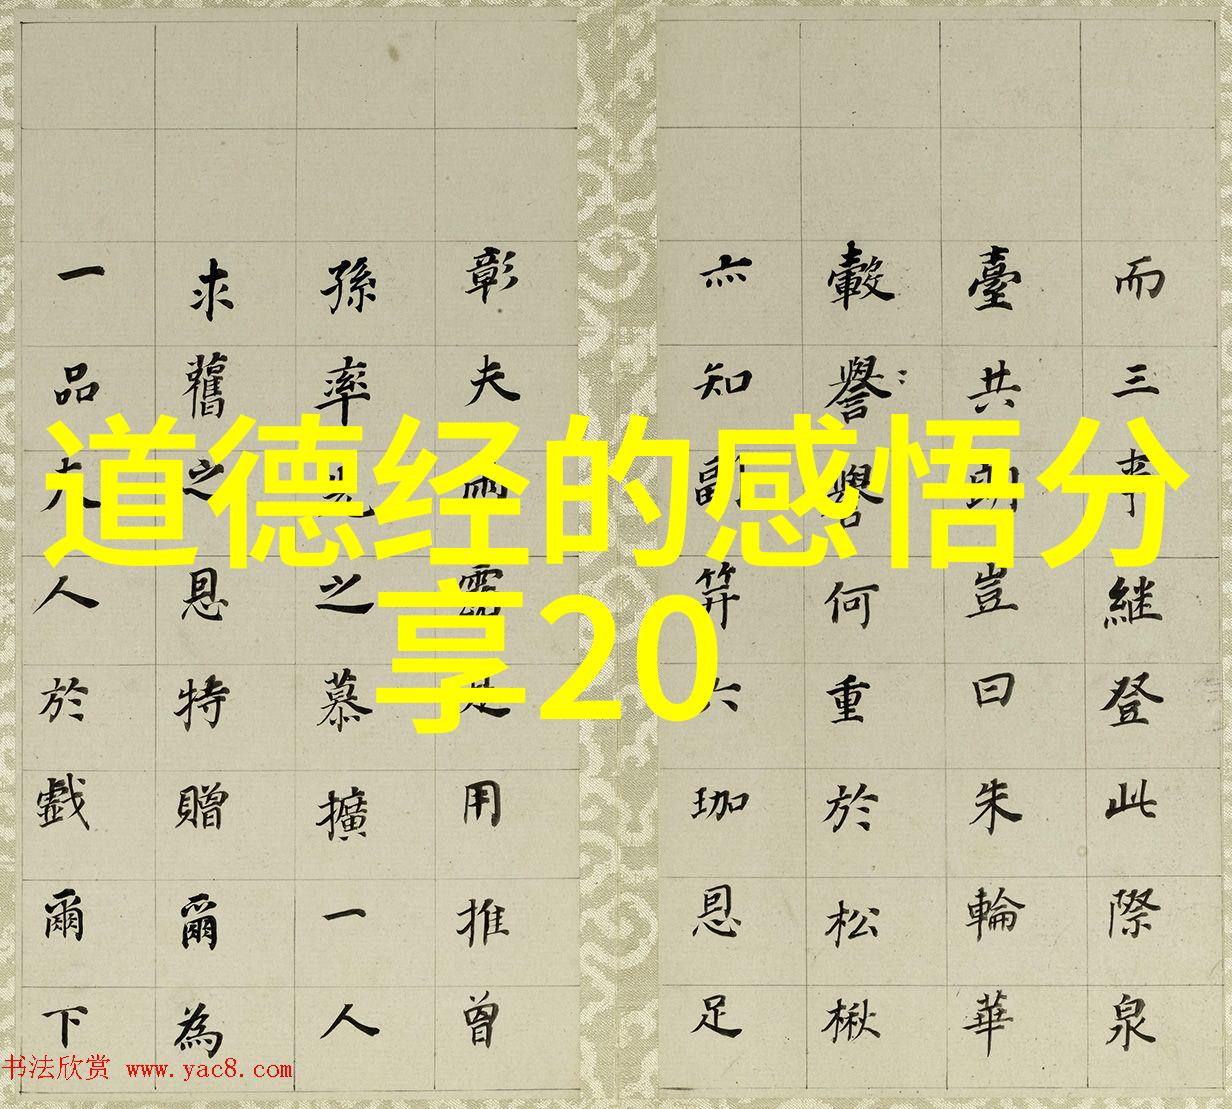 道德经的感悟分
享20
而三継登此際泉
臺共豈曰朱輪華
轂譽譽何重於松楸
亦知副笄六珈恩足
彰夫雨露是用推曾
孫率之慕擴一人
求舊之恩特贈爾為
一品夫人於戲爾下
书法欣赏 www.yac8.com